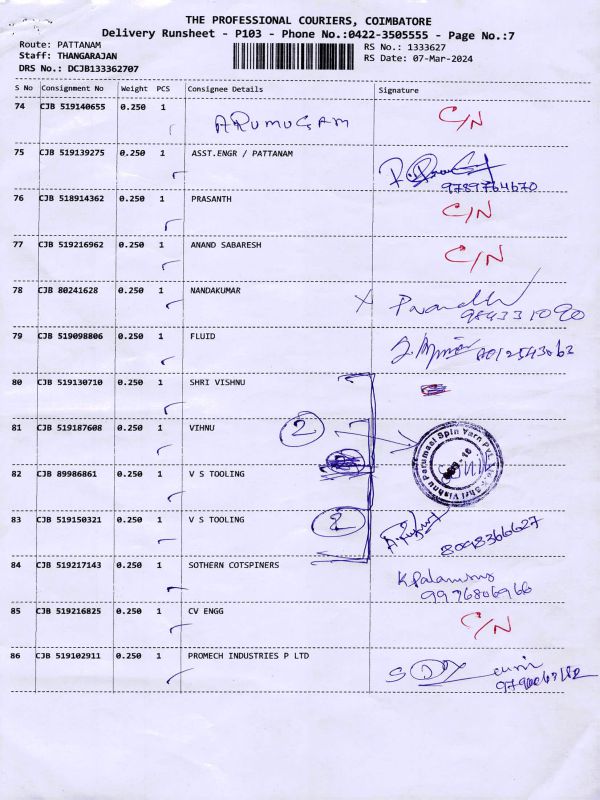 THE PROFESSIONAL COURIERS, COIMBATORE
Delivery Runsheet - P103 - Phone No.:0422-3505555 - Page No.:7
Route: PATTANAM
RS No.: 1333627
Staff: THANGARAJAN
RS Date: 07-Mar-2024
DRS No.: DCJB133362707
S No Consignment No Weight PCS Consignee Details Signature
74 CJB 519140655 0.250 1 ARUMUGAM C/N
75 CJB 519139275 0.250 1 ASST.ENGR / PATTANAM
9789764670
76 CJB 518914362 0.250 1 PRASANTH C/N
77 CJB 519216962 0.250 1 ANAND SABARESH C/N
78 CJB 80241628 0.250 1 NANDAKUMAR X
984331090
79 CJB 519098806 0.250 1 FLUID
80 CJB 519130710 0.250 1 SHRI VISHNU
81 CJB 519187608 0.250 1 VIHNU 2
Shri Vishnu Parumaal Spin Yarn
82 CJB 89986861 0.250 1 V S TOOLING
83 CJB 519150321 0.250 1 V S TOOLING 2
8098366627
84 CJB 519217143 0.250 1 SOTHERN COTSPINERS
9976806966
85 CJB 519216825 0.250 1 CV ENGG C/N
86 CJB 519102911 0.250 1 PROMECH INDUSTRIES P LTD